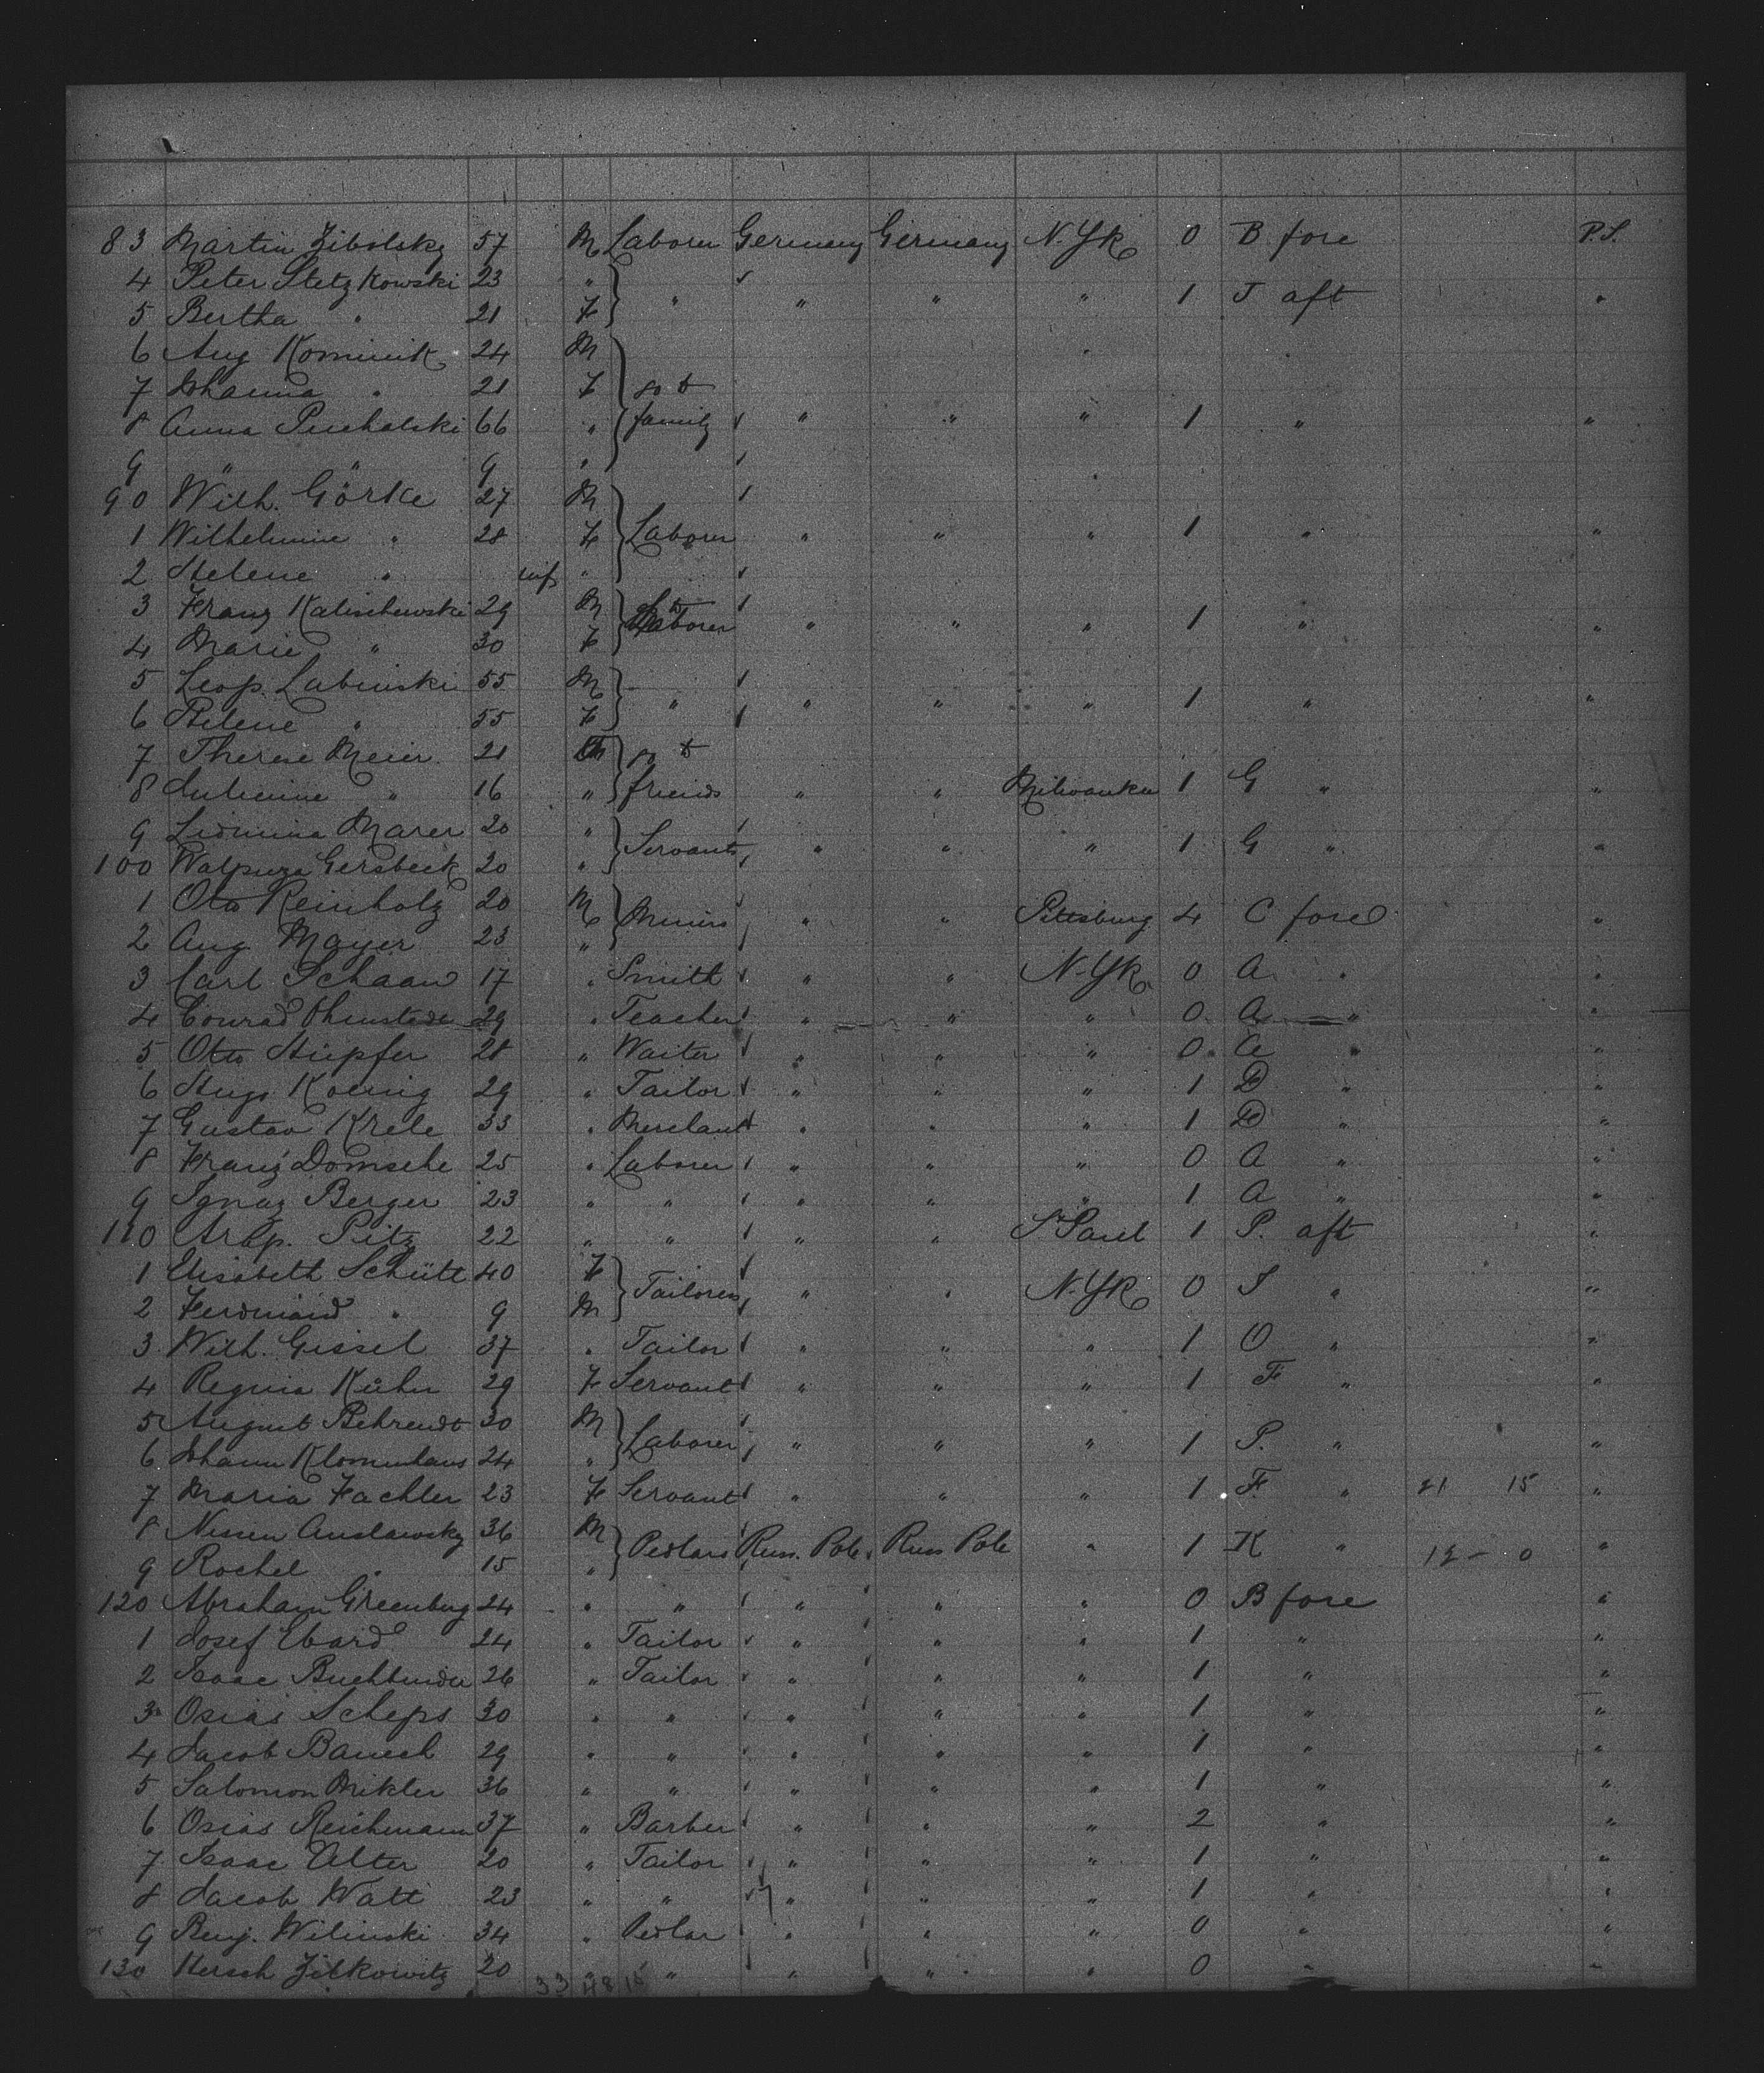 83 Martin Zibolsky 57 M Laborer Germany Germany N. Yk 0 B fore P.S.
4 Peter Stetzkowski 23 "
5 Bertha " 21 F " " " " 1 J aft "
6 Aug Kominik 24 M
7 Johanna " 21 F so to
8 Anna Pucholski 66 " family " " " 1 " "
9 " " 9 "
90 Wilh. Görke 27 M
1 Wilhelmine " 28 F Laborer " " " 1 " "
2 Helene " inf "
3 Franz Kalischewski 29 M
4 Marie " 30 F Laborer " " " 1 " "
5 Leop. Labinski 55 M
6 " 55 F " " " " 1 " "
7 Therese Meier 21 so to
8 " 16 " friends " " Milwaukee 1 G " "
9 Marer 20 "
100 Gersbeck 20 " Servants " " " 1 G " "
1 Otto Reinholz 20 M
2 Aug. Mayer 23 " Miners " " Pittsburg 4 C fore "
3 Carl Schaan 17 " Smith " " N. Yk 0 A " "
4 Conrad 29 " Teacher " " " 0 A " "
5 Otto Hüpfer 28 " Waiter " " " 0 A " "
6 Hugo Koenig 29 " Tailor " " " 1 D " "
7 Gustav Krele 33 " Merchant " " " 1 D " "
8 Franz Domsche 25 " Laborer " " " 0 A " "
9 Ignaz Berger 23 " " " " " 1 A " "
110 Pitz 22 " " " " St Paul 1 P. aft "
1 Elisabeth Schütt 40 F
2 Ferdinand " 9 M Tailoress " " N. Yk 0 J " "
3 Wilh. Gissel 37 " Tailor " " " 1 O " "
4 Regina Kühn 29 F Servant " " " 1 F " "
5 August Behrendt 30 M
6 Johann 24 " Laborer " " " 1 P. " "
7 Maria Fachler 23 F Servant " " " 1 F " 21 15 "
8 Nissen Anslawsky 36 M
9 Rochel " 15 " Pedlars Russ. Pole Russ Pole " 1 K " 12 - 0 "
120 Abraham Greenberg 24 " " " " " 0 B fore "
1 Josef Ebard 24 " Tailor " " " 1 " "
2 Isaac Buchbinder 26 " Tailor " " " 1 " "
3 Osias Scheps 30 " " " " " 1 " "
4 Jacob Banech 29 " " " " " 1 " "
5 Salomon Mikler 36 " " " " " 1 " "
6 Osias Reichmann 37 " Barber " " " 2 " "
7 Isaac Alter 20 " Tailor " " " 1 " "
8 Jacob Watt 23 " " " " " 1 " "
9 Benj. Wilinski 34 " Pedlar " " " 0 " "
130 Hersch Zilkowitz 20 " " " " " 0 " "
33 48 15